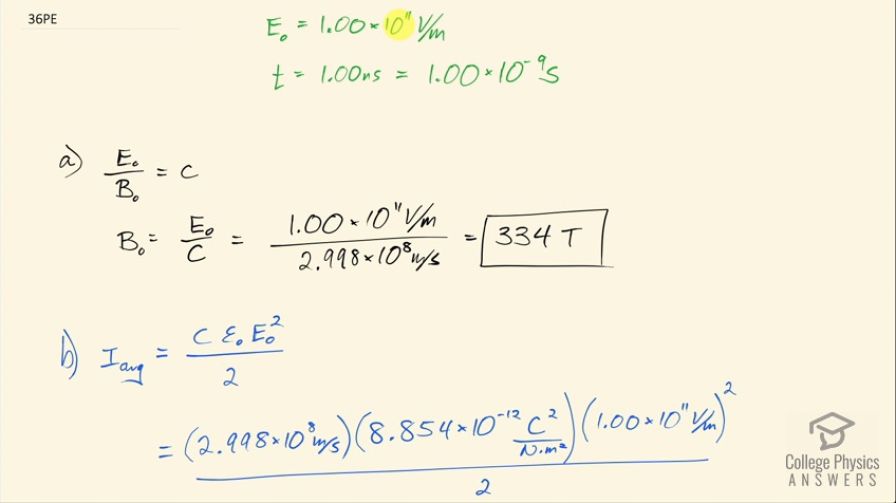 36PE
E₀ = 1.00 × 10¹¹ V/m
t = 1.00ns = 1.00 × 10⁻⁹ S
a) E₀/B₀ = C
B₀ = E₀/C = 1.00 × 10¹¹ V/m / 2.998 × 10⁸ m/s = 334 T
b) I avg = C ε₀ E₀² / 2
= (2.998 × 10⁸ m/s)(8.854 × 10⁻¹² C²/N·m²)(1.00 × 10¹¹ V/m)² / 2
College Physics
ANSWERS